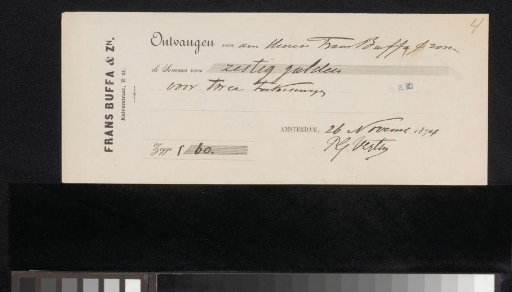 4
FRANS BUFFA & ZN.
Kalverstraat, E 21.
Ontvangen van den Heeren Frans Buffa & zoon
de Somma van zestig gulden
voor twee
AMSTERDAM, 26 Novemb 1874
Zegge f 60.